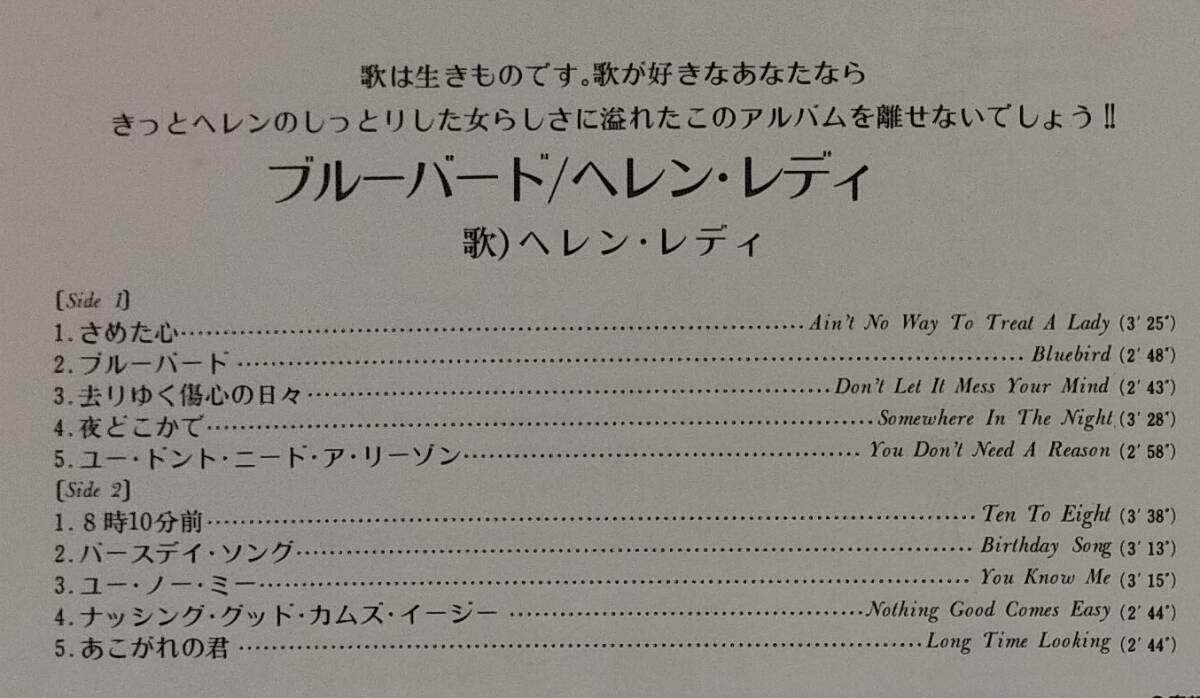 歌は生きものです。歌が好きなあなたなら
きっとヘレンのしっとりした女らしさに溢れたこのアルバムを離せないでしょう!!
ブルーバード/ヘレン・レディ
歌)ヘレン・レディ
[Side 1]
1.さめた心…Ain't No Way To Treat A Lady (3'25")
2.ブルーバード…Bluebird (2'48")
3.去りゆく傷心の日々…Don't Let It Mess Your Mind (2'43")
4.夜どこかで…Somewhere In The Night (3'28")
5.ユー・ドント・ニード・ア・リーゾン…You Don't Need A Reason (2'58")
[Side 2]
1.8時10分前…Ten To Eight (3'38")
2.バースデイ・ソング…Birthday Song (3'13")
3.ユー・ノー・ミー…You Know Me (3'15")
4.ナッシング・グッド・カムズ・イージー…Nothing Good Comes Easy (2'44")
5.あこがれの君…Long Time Looking (2'44")